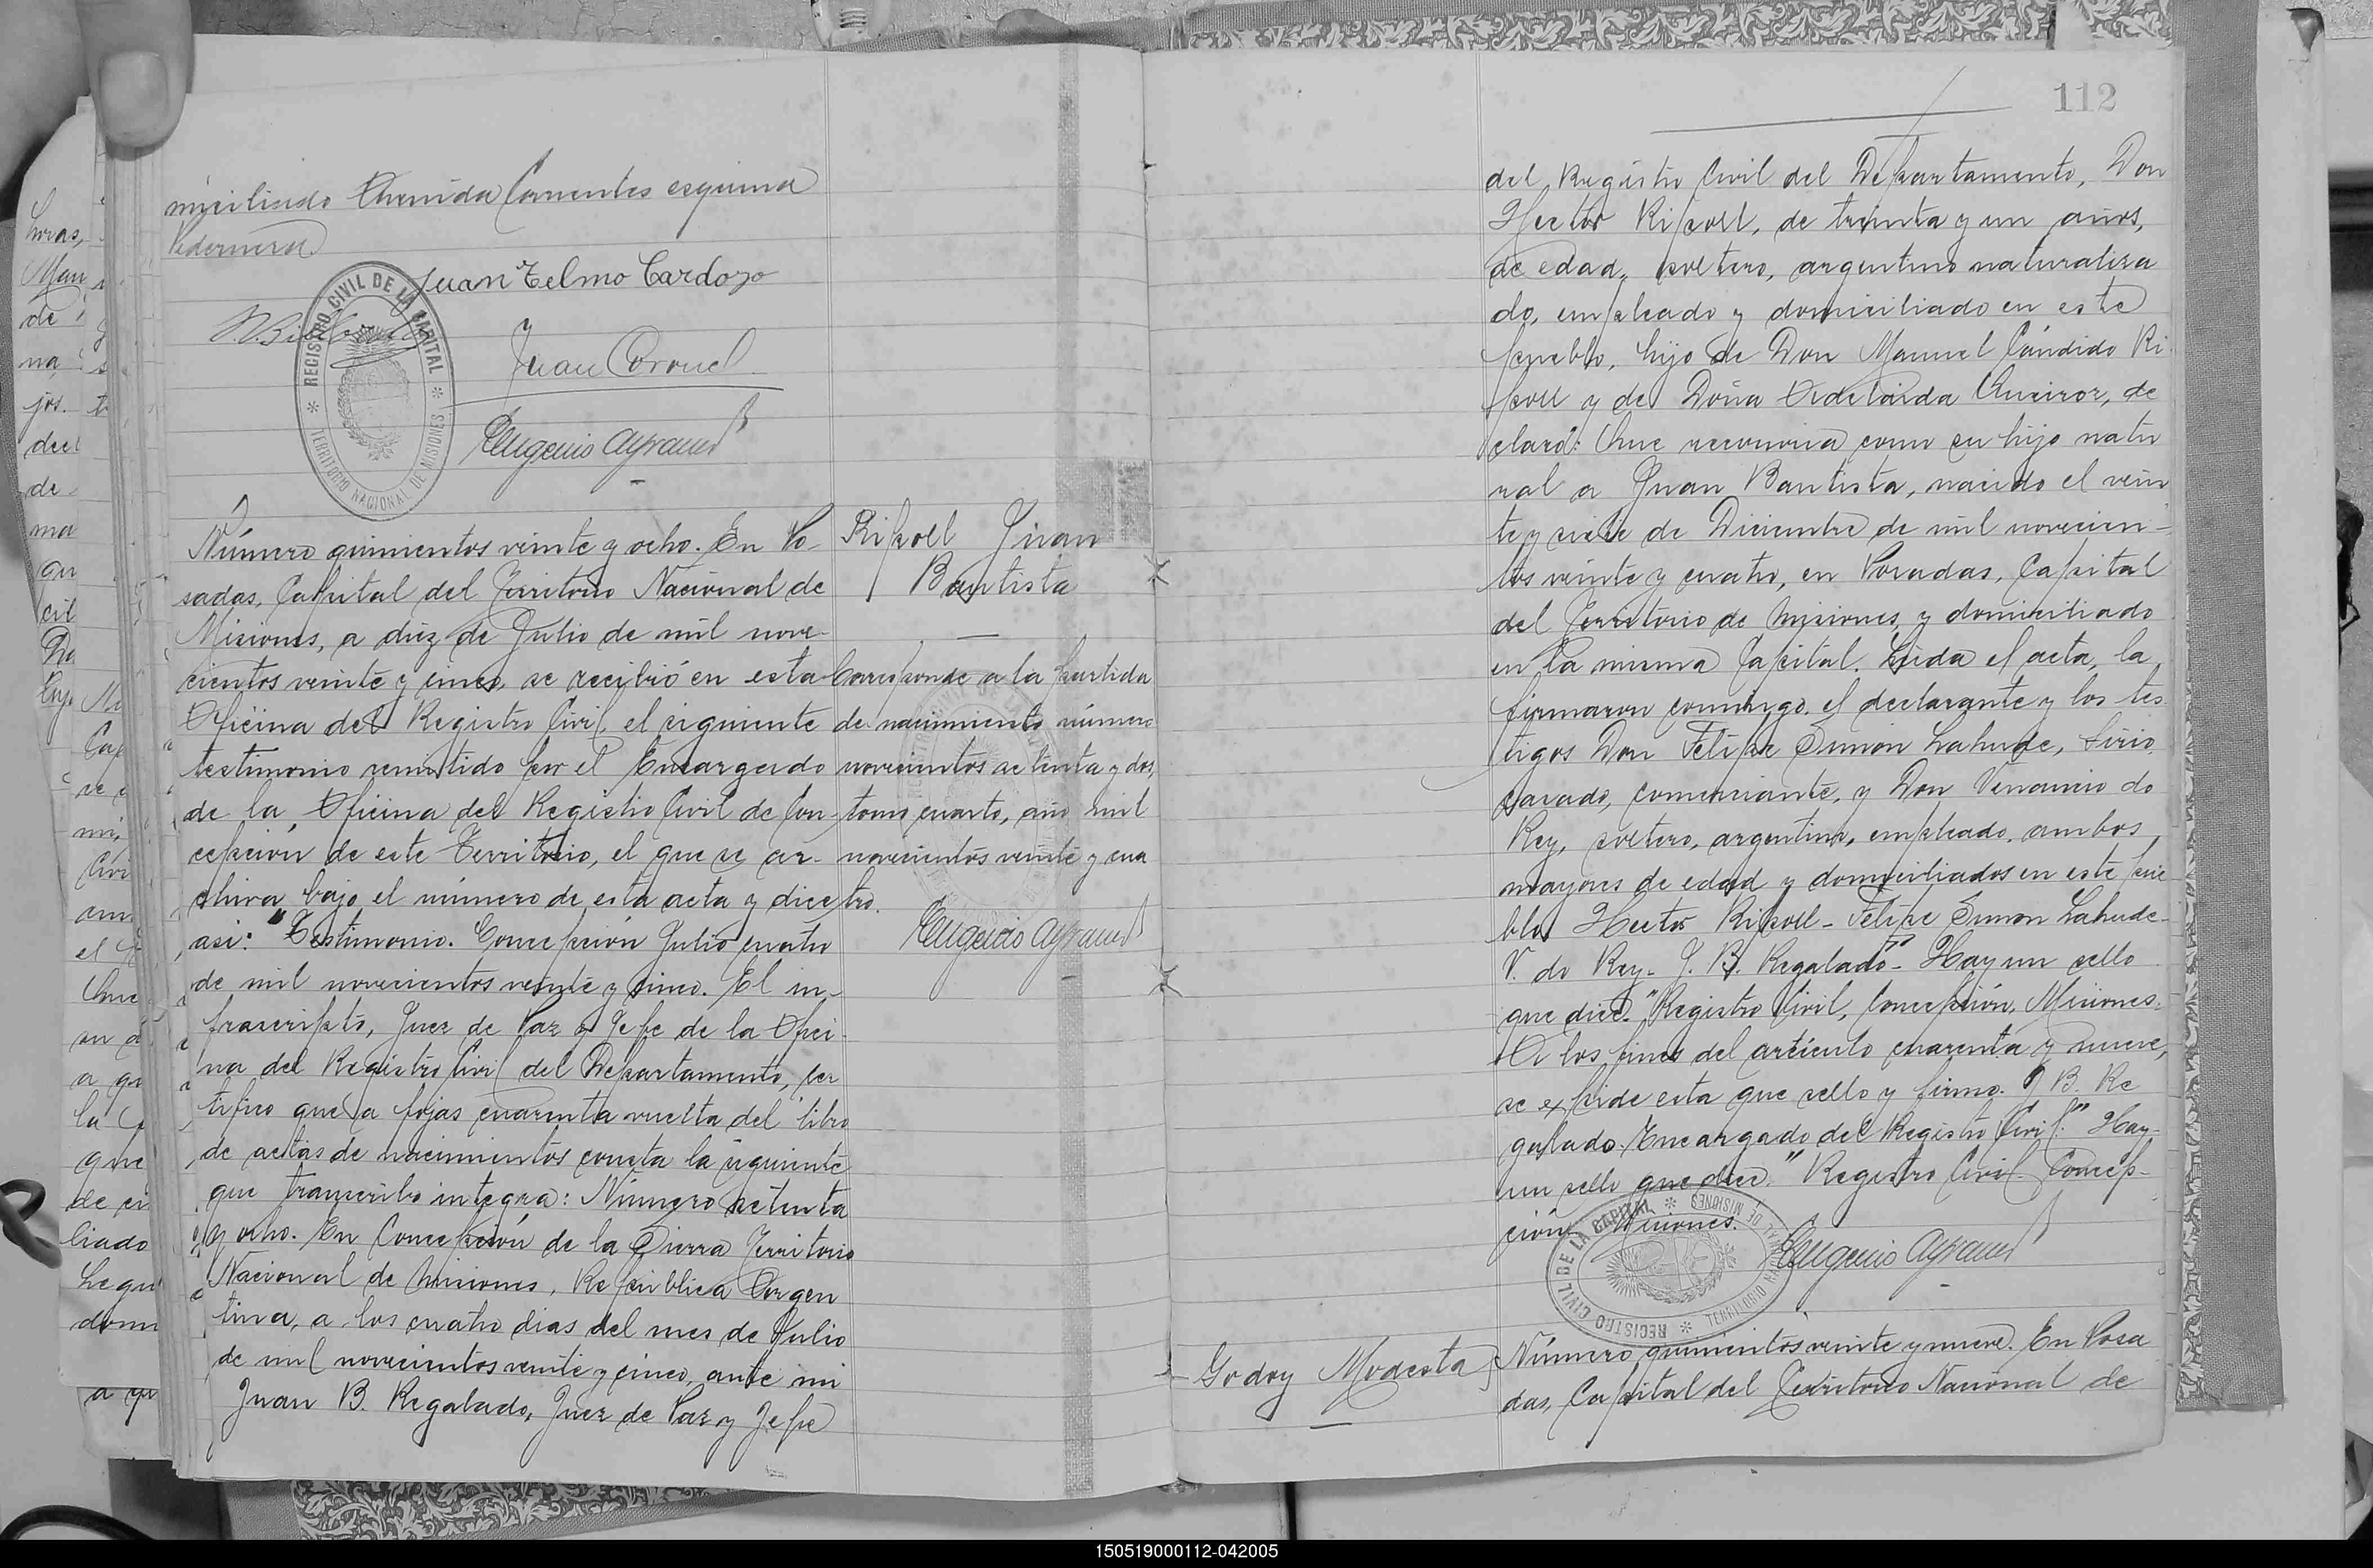 miciliado Avenida Corrientes esquina
Pedernera
Juan Telmo Cardozo
Juan Coronel
Eugenio Ayrault
REGISTRO CIVIL DE LA CAPITAL
TERRITORIO NACIONAL DE MISIONES
Número quinientos veinte y ocho. En Po-
sadas, Capital del Territorio Nacional de
Misiones, a diez de Julio de mil nove-
cientos veinte y cinco, se recibió en esta
Oficina del Registro Civil, el siguiente
testimonio remitido por el Encargado
de la Oficina del Registro Civil de Con-
cepción de este Territorio, el que se ar-
chiva bajo el número de esta acta y dice
asi: "Testimonio. Concepción Julio cuatro
de mil novecientos veinte y cinco. El in-
frascripto, Juez de Paz y Jefe de la Ofici-
na del Registro Civil del Departamento, cer
tifico que a fojas cuarenta vuelta del libro
de actas de nacimientos consta la siguiente
que transcribo integra: Número setenta
y ocho. En Concepción de la Sierra Territorio
Nacional de Misiones, República Argen
tina, a los cuatro dias del mes de Julio
de mil novecientos veinte y cinco, ante mi
Juan B. Regalado, Juez de Paz y Jefe
Ripoll Juan
Bautista
Corresponde a la partida
de nacimiento número
novecientos setenta y dos,
tomo cuarto, año mil
novecientos veinte y cua
tro.
Eugenio Ayrault
112
del Registro Civil del Departamento, Don
Hector Ripoll, de treinta y un años,
de edad, soltero, argentino naturaliza
do, empleado y domiciliado en este
pueblo, hijo de Don Manuel Cándido Ri
poll y de Doña Adelaida Queiroz, de
claró: Que reconocia como su hijo natu
ral a Juan Bautista, nacido el vein
te y siete de Diciembre de mil novecien-
tos veinte y cuatro, en Posadas, Capital
del Territorio de Misiones, y domiciliado
en la misma Capital. Leida el acta, la
firmaron conmigo, el declarante y los tes
tigos Don Felipe Simon Lahude, Sirio,
casado, comerciante, y Don Venancio do
Rey, soltero, argentino, empleado, ambos
mayores de edad y domiciliados en este pue
blo Hector Ripoll - Felipe Simon Lahude-
V. do Rey - J. B. Regalado" - Hay un sello
que dice: "Registro Civil, Concepción, Misiones.
A los fines del artículo cuarenta y nueve,
se expide esta que sello y firmo. J B. Re
galado. Encargado del Registro Civil." Hay
un sello que dice: "Registro Civil. Concep-
ción Misiones.
Eugenio Ayrault
REGISTRO CIVIL DE LA CAPITAL
Godoy Modesta
Número quinientos veinte y nueve. En Posa
das, Capital del Territorio Nacional de
150519000112-042005